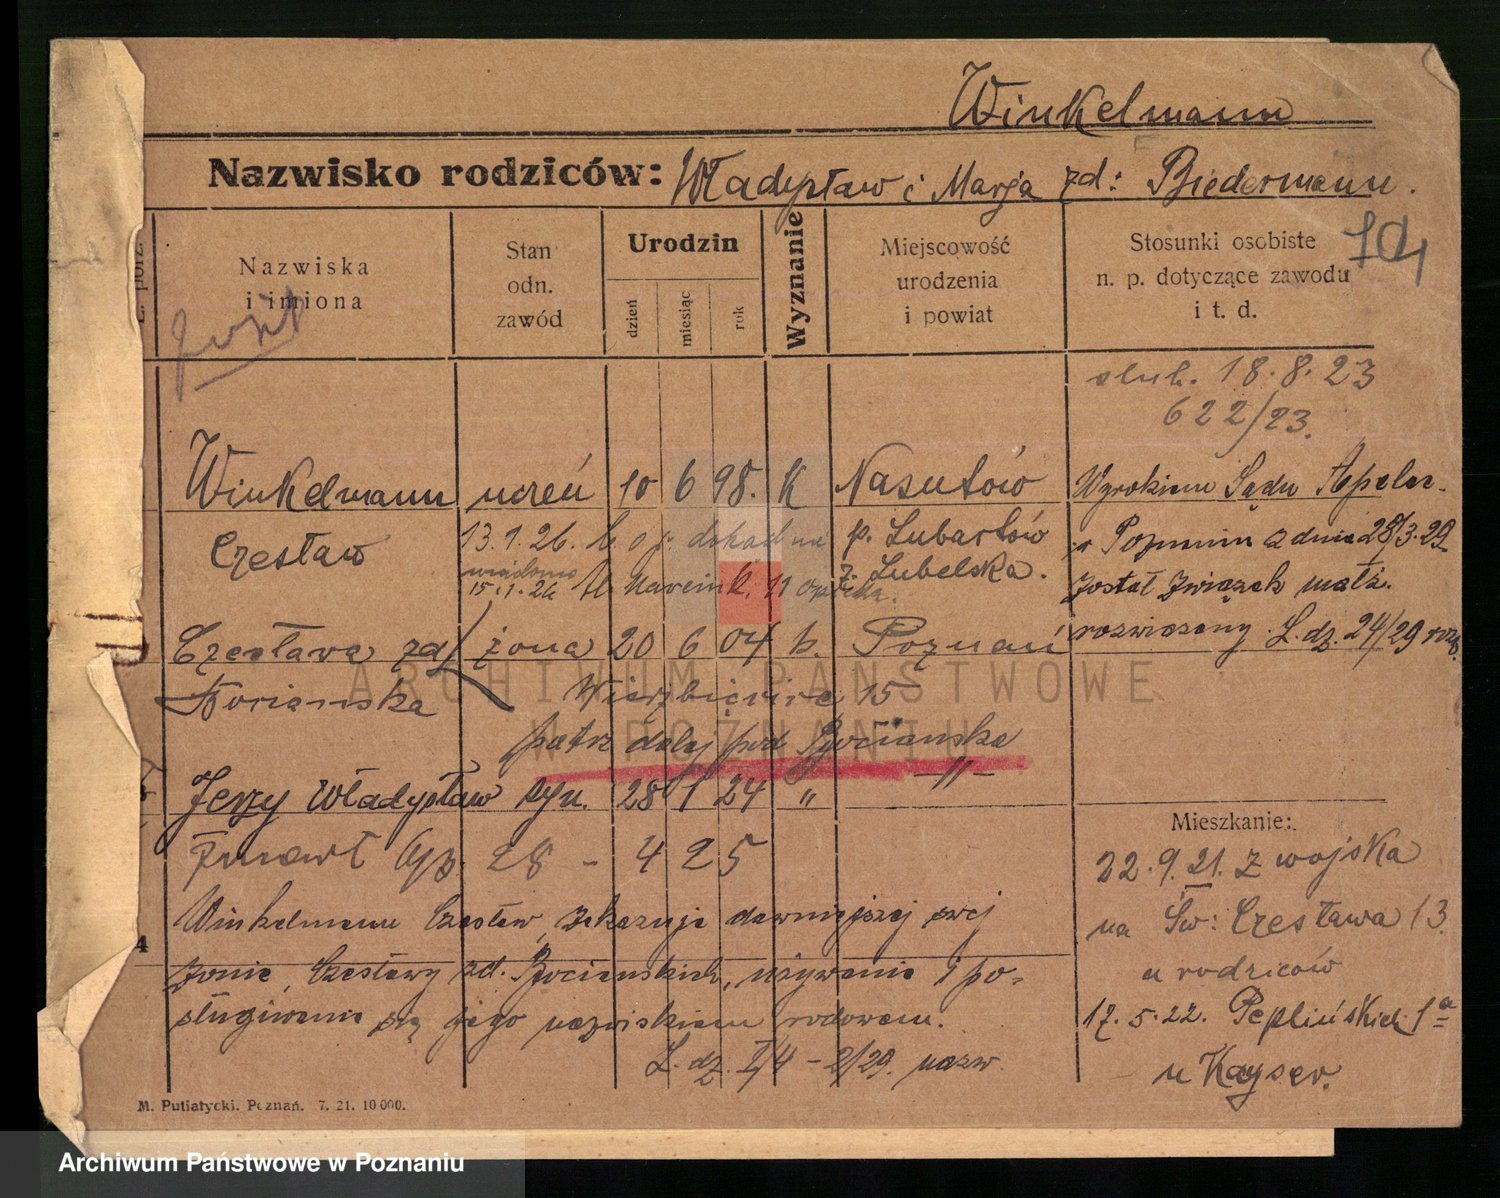 Winkelmann
Nazwisko rodziców: Władysław i Marja zd: Biedermann.
L. porz.
Nazwiska
i imiona
Stan
odn.
zawód
Urodzin
dzień
miesiąc
rok
Wyznanie
Miejscowość
urodzenia
i powiat
Stosunki osobiste
n. p. dotyczące zawodu
i t. d.
ślub. 18.8.23
622/23.
Winkelmann uczeń 10 6 98. K Nasutów
Czesław
13.1.26.
15.1.26
11
p. Lubartów
z. Lubelska.
Wyrokiem Sądu Apelac-
w Poznaniu z dnia 28/3.29
został związek małż.
rozwiązany. L. dz. 24/29 rozp.
Czesława zd/ żona 20 6 04 k. Poznań
Bocianska Wierzbięcice 15
patrz dalej pod Bocianska
Jerzy Władysław syn. 28 1 24 " -"-
zmarł 28 - 4 25
Winkelmann Czesław, zakazuje dawniejszej swej
żonie, Czesławy zd. Bocianskich, używanie i po-
sługiwanie się jego nazwiskiem rodowem.
L. dz. I/4 - 2/29. nazw.
4
Mieszkanie:
22.9.21. z wojska
na Św: Czesława 13.
u rodziców
17.5.22. Peplińskiej 1a
u Kayser.
M. Putiatycki. Poznań. 7. 21. 10 000.
ARCHIWUM PAŃSTWOWE
W POZNANIU
Archiwum Państwowe w Poznaniu